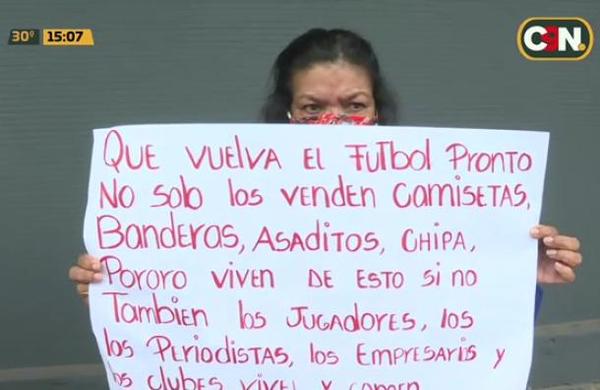 30º 15:07
C9N.
QUE VUELVA EL FUTBOL PRONTO
NO SOLO LOS VENDEN CAMISETAS,
BANDERAS, ASADITOS, CHIPA,
PORORO VIVEN DE ESTO SI NO
TAMBIEN LOS JUGADORES, LOS
LOS PERIODISTAS, LOS EMPRESARIS Y
LOS CLUBES VIVEN Y COMEN